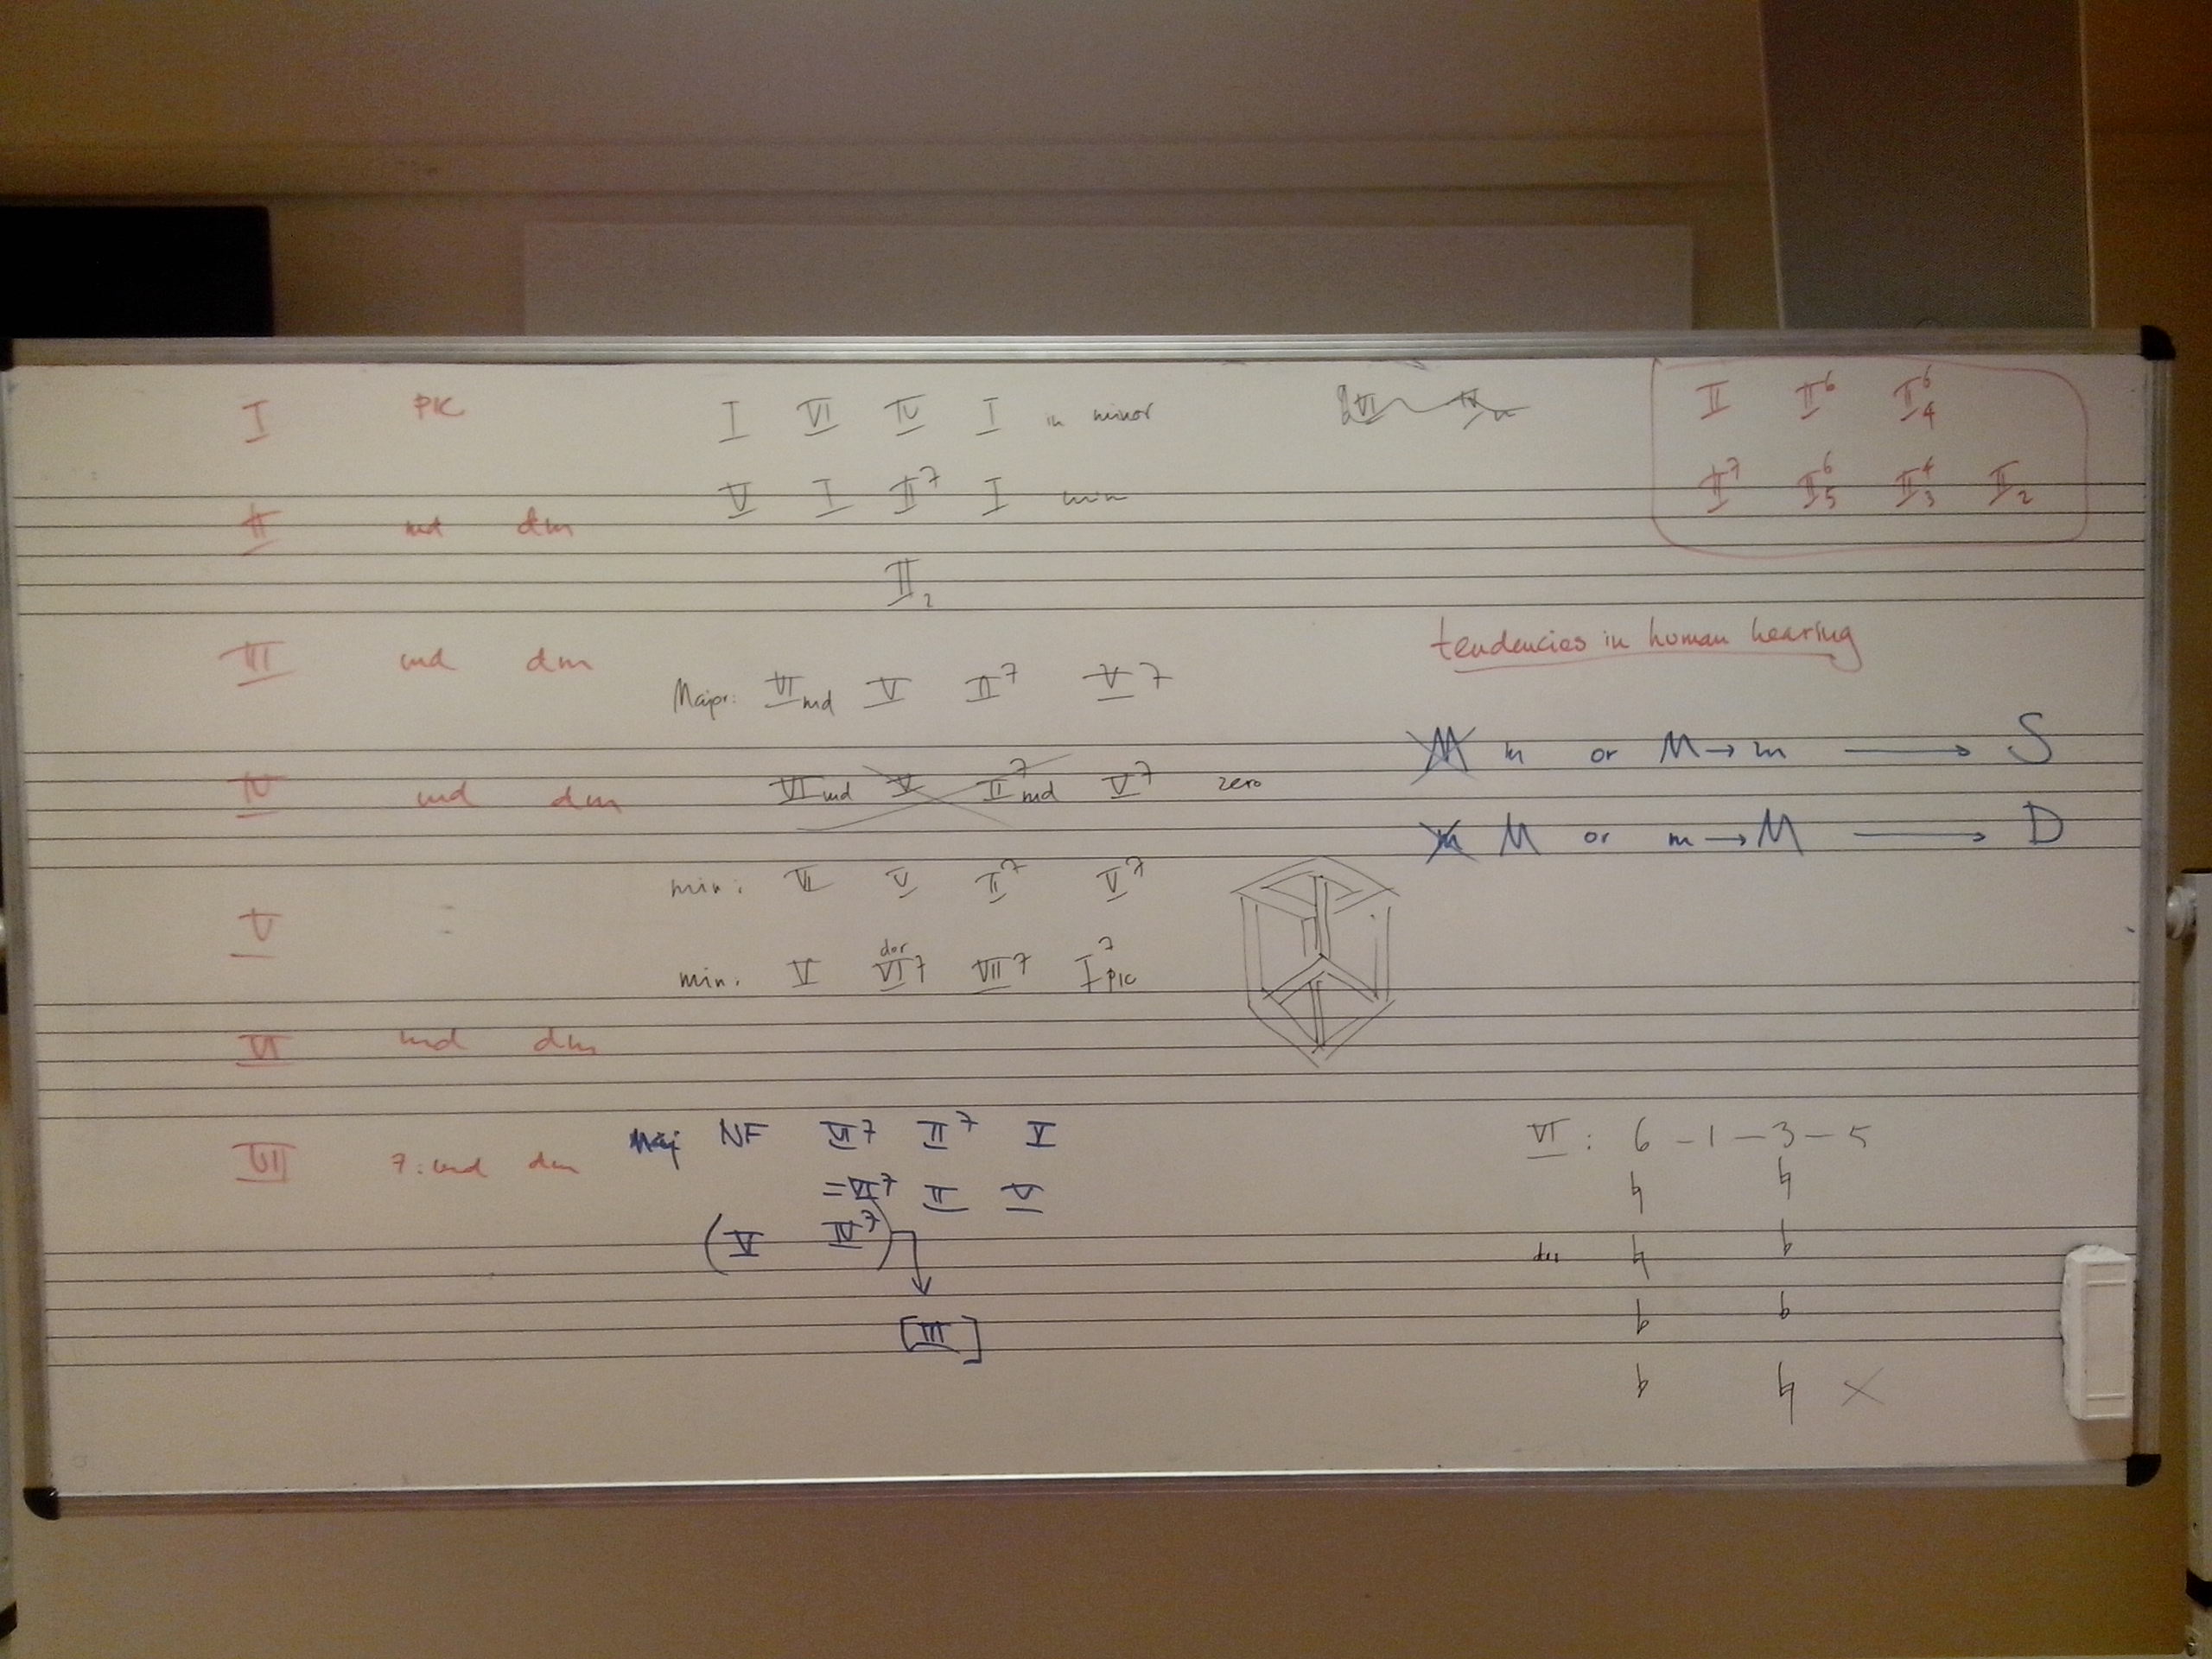 I PIC
II md dm
III md dm
IV md dm
V =
VI md dm
VII 7: md dm
I VI IV I in minor
V I II⁷ I min
II₂
Major: VI md V II⁷ V⁷
VI md V II⁷ md V⁷ zero
min: VI V II⁷ V⁷
min. V dor VI⁷ VII⁷ I⁷ PIC
Maj NF VI⁷ II⁷ V
= VI⁷ II V
(V IV⁷)
[III]
II II⁶ II⁶₄
II⁷ II⁶₅ II⁴₃ II₂
tendencies in human hearing
M m or M → m → S
m M or m → M → D
VI: 6 - 1 - 3 - 5
♮ ♮
♮ ♭
♭ ♭
♭ ♮ ×